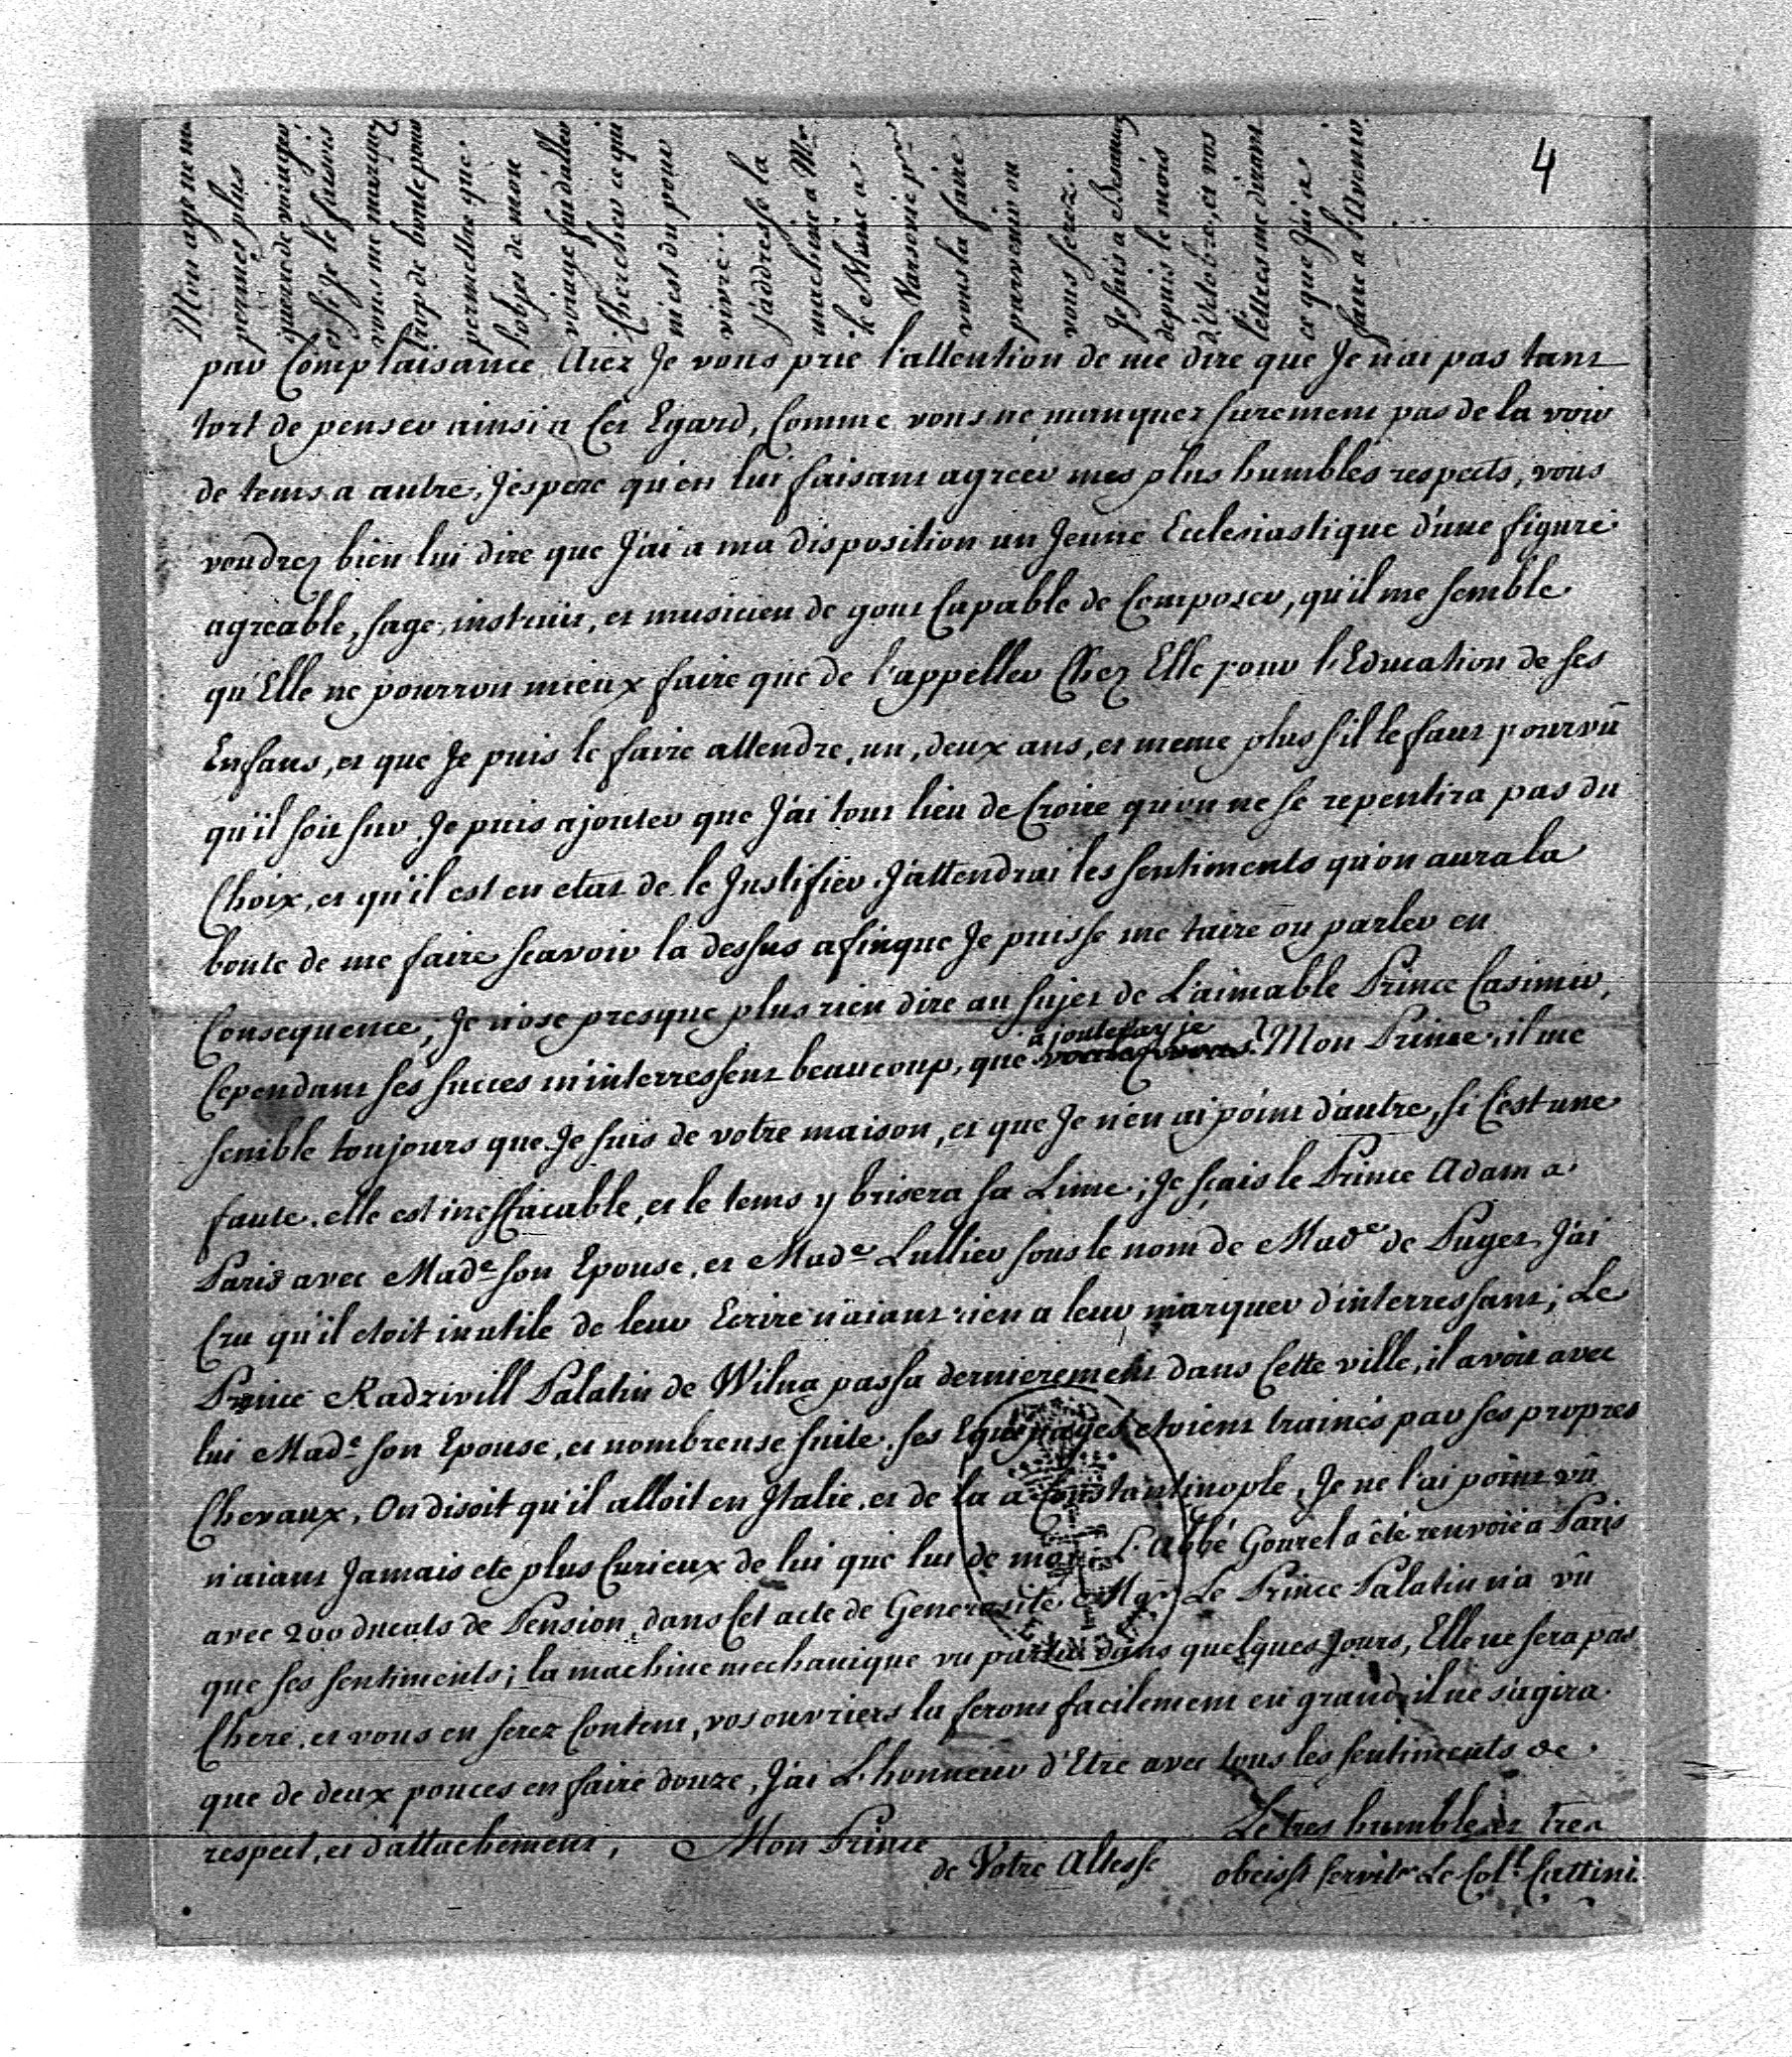 4
Mon age ne me
permet plus
gueres de voiages
et si je le faisois
vous me marquez
trop de bonté pour
permettre que
l'objet de mon
voiage fut d'aller
chercher ce qui
m'est du pour
vivre.
J'addresse la
machine a Mr.
le Mine a
Varsovie pr
vous la faire
parvenir ou
vous serez.
Je suis a
depuis le mois
d'octobre, et vos
lettres me diront
ce que j'ai a
faire a l'avenir.
par Complaisance. Aiez Je vous prie l'attention de me dire que Je n'ai pas tant
tort de penser ainsi a Cet Egard, Comme vous ne manquez surement pas de la voir
de tems a autre, J'espere qu'en lui faisant agreer mes plus humbles respects, vous
voudrez bien lui dire que J'ai a ma disposition un Jeune Ecclesiastique d'une figure
agreable, sage, instruit, et musicien de gout Capable de Composer, qu'il me semble
qu'Elle ne pourroit mieux faire que de l'appeller Chez Elle pour l'Education de ses
Enfans, et que Je puis le faire attendre, un, deux ans, et meme plus s'il le faut pourvû
qu'il soit sur. Je puis ajouter que J'ai tout lieu de Croire qu'on ne se repentira pas du
Choix, et qu'il est en etat de le Justifier. J'attendrai les sentiments qu'on aura la
bonté de me faire scavoir la dessus afinque Je puisse me taire ou parler en
Consequence; Je n'ose presque plus rien dire au sujet de L'aimable Prince Casimir,
Cependant ses succes m'interressent beaucoup, que ajouteray je? Mon Prince, il me
semble toujours que Je suis de votre maison, et que Je n'en ai point d'autre, si C'est une
faute, elle est ineffacable, et le tems y brisera sa Lime; Je sçais le Prince Adam a
Paris avec Made son Epouse, et Made Lullier sous le nom de Made de Puget, J'ai
Cru qu'il etoit inutile de leur Ecrire n'aiant rien a leur marquer d'interressant; Le
Prince Radzivill Palatin de Wilna passa dernierement dans Cette ville, il avoit avec
lui Made son Epouse, et nombreuse suite, ses Equipages etoient trainés par ses propres
Chevaux, On disoit qu'il alloit en Italie, et de la a Constantinople, Je ne l'ai point vû
n'aiant Jamais eté plus Curieux de lui que lui de moi. L'Abbé Gouret a été renvoié a Paris
avec 200 ducats de Pension, dans Cet acte de Generosité Mgr Le Prince Palatin n'a vû
que ses sentiments; la machine mechanique va partir dans quelques Jours, Elle ne sera pas
Chere, et vous en serez Content, vos ouvriers la feront facilement en grand, il ne s'agira
que de deux pouces en faire douze, J'ai L'honneur d'Etre avec tous les sentiments de
respect, et d'attachement, Mon Prince
de Votre Altesse
Le tres humble et tres
obeisst servitr Le Coll Cattini.